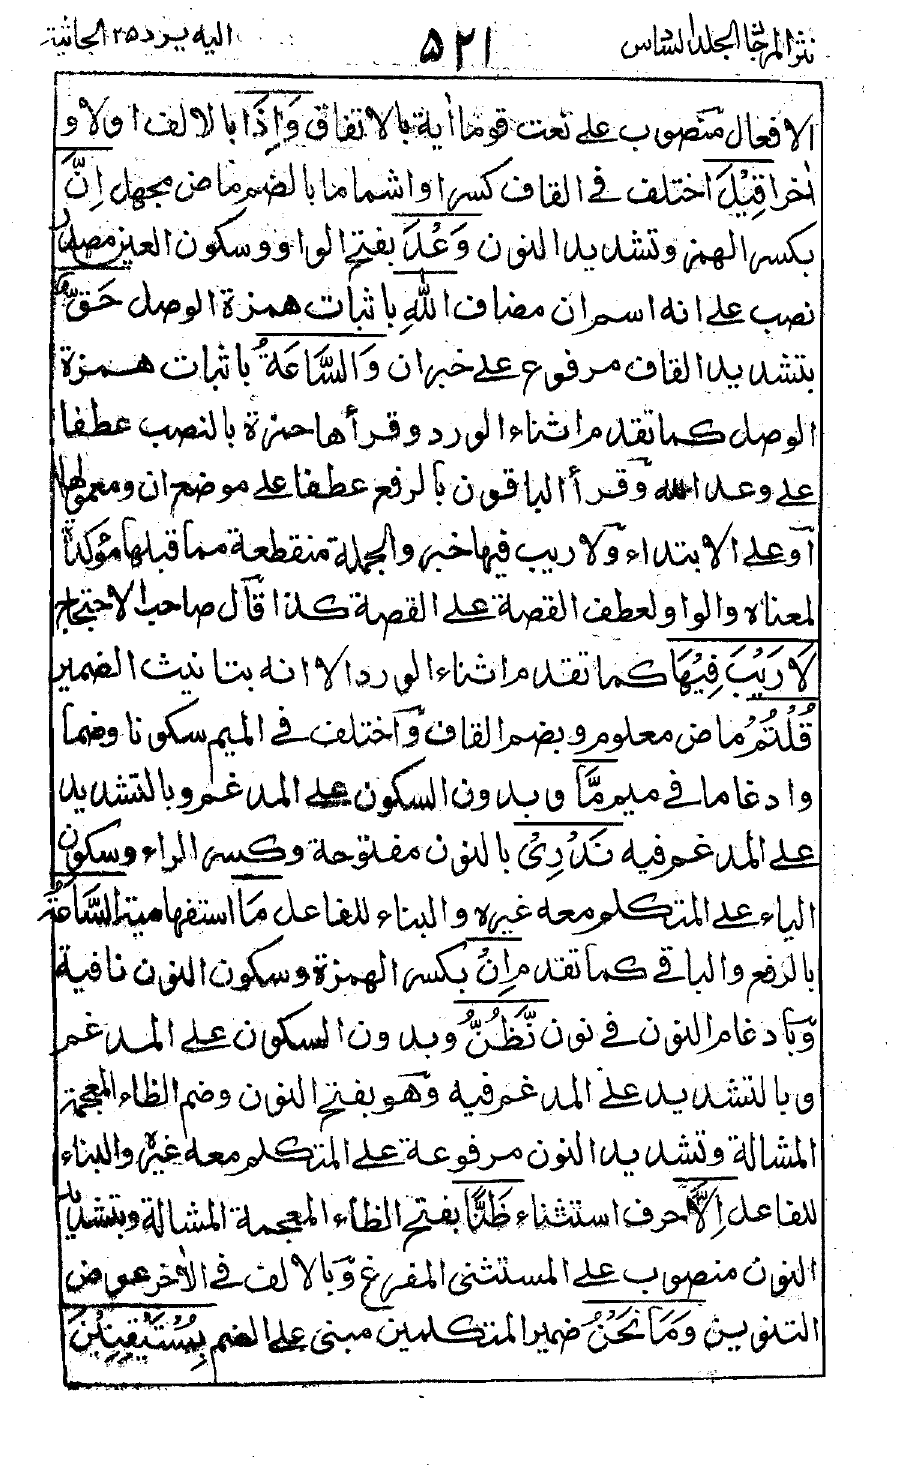 نثر المرجان المجلد السادس ٥٢١ اليه يرد ٢٥ الجاثية
الافعال منصوب على نعت قوما اية بالاتفاق وَإِذَا بالالف اولا و
اٰخرا قِيْلَ اختلف فى القاف كسرا واشماما بالضم ماض مجهل اِنَّ
بكسر الهمز وتشديد النون وَعْدَ بفتح الواو وسكون العين مصدر
نصب على انه اسم ان مضاف اللّٰهِ باثبات همزة الوصل حَقٌّ
بتشديد القاف مرفوع على خبر ان وَالسَّاعَةُ باثبات همزة
الوصل كما تقدم اثناء الورد وقرأها حمزة بالنصب عطفا
على وعد الله وقرأ الباقون بالرفع عطفا على موضع ان ومعمولها
او على الابتداء ولا ريب فيها خبره والجملة منقطعة مما قبلها مؤكدة
لمعناه والواو لعطف القصة على القصة كذا قال صاحب الاحتجاج
لَا رَيْبَ فِيْهَا كما تقدم اثناء الورد الا انه بتانيث الضمير
قُلْتُمْ ماض معلوم وبضم القاف واختلف فى الميم سكونا وضما
وادغاما فى ميم مَّا وبدون السكون على المدغم وبالتشديد
على المدغم فيه نَدْرِىْ بالنون مفتوحة وكسر الراء وسكون
الياء على المتكلم معه غيره والبناء للفاعل مَا استفهامية السَّاعَةُ
بالرفع والباقى كما تقدم اِنْ بكسر الهمزة وسكون النون نافية
وبادغام النون فى نون نَّظُنُّ وبدون السكون على المدغم
وبالتشديد على المدغم فيه وهو بفتح النون وضم الظاء المعجمة
المشالة وتشديد النون مرفوعة على المتكلم معه غيره والبناء
للفاعل اِلَّا حرف استثناء ظَنًّا بفتح الظاء المعجمة المشالة وبتشديد
النون منصوب على المستثنى المفرغ وبالالف فى الاٰخر عوض
التنوين وَمَا نَحْنُ ضمير المتكلمين مبنى على الضم بِمُسْتَيْقِنِيْنَ